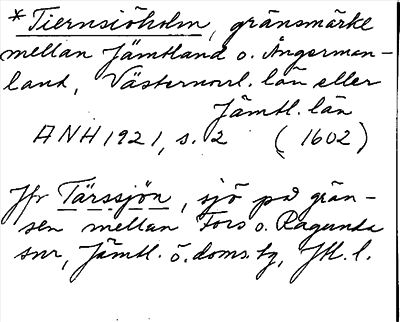 * Tiernsiöholm, gränsmärke
mellan Jämtland o. Ångerman-
land, Västernorrl. län eller
Jämtl. län
ANH 1921, s. 2 (1602)
Jfr Tärssjön, sjö på grän-
sen mellan Fors o. Ragunda
snr, Jämtl. ö. doms. tg, Jtl. l.